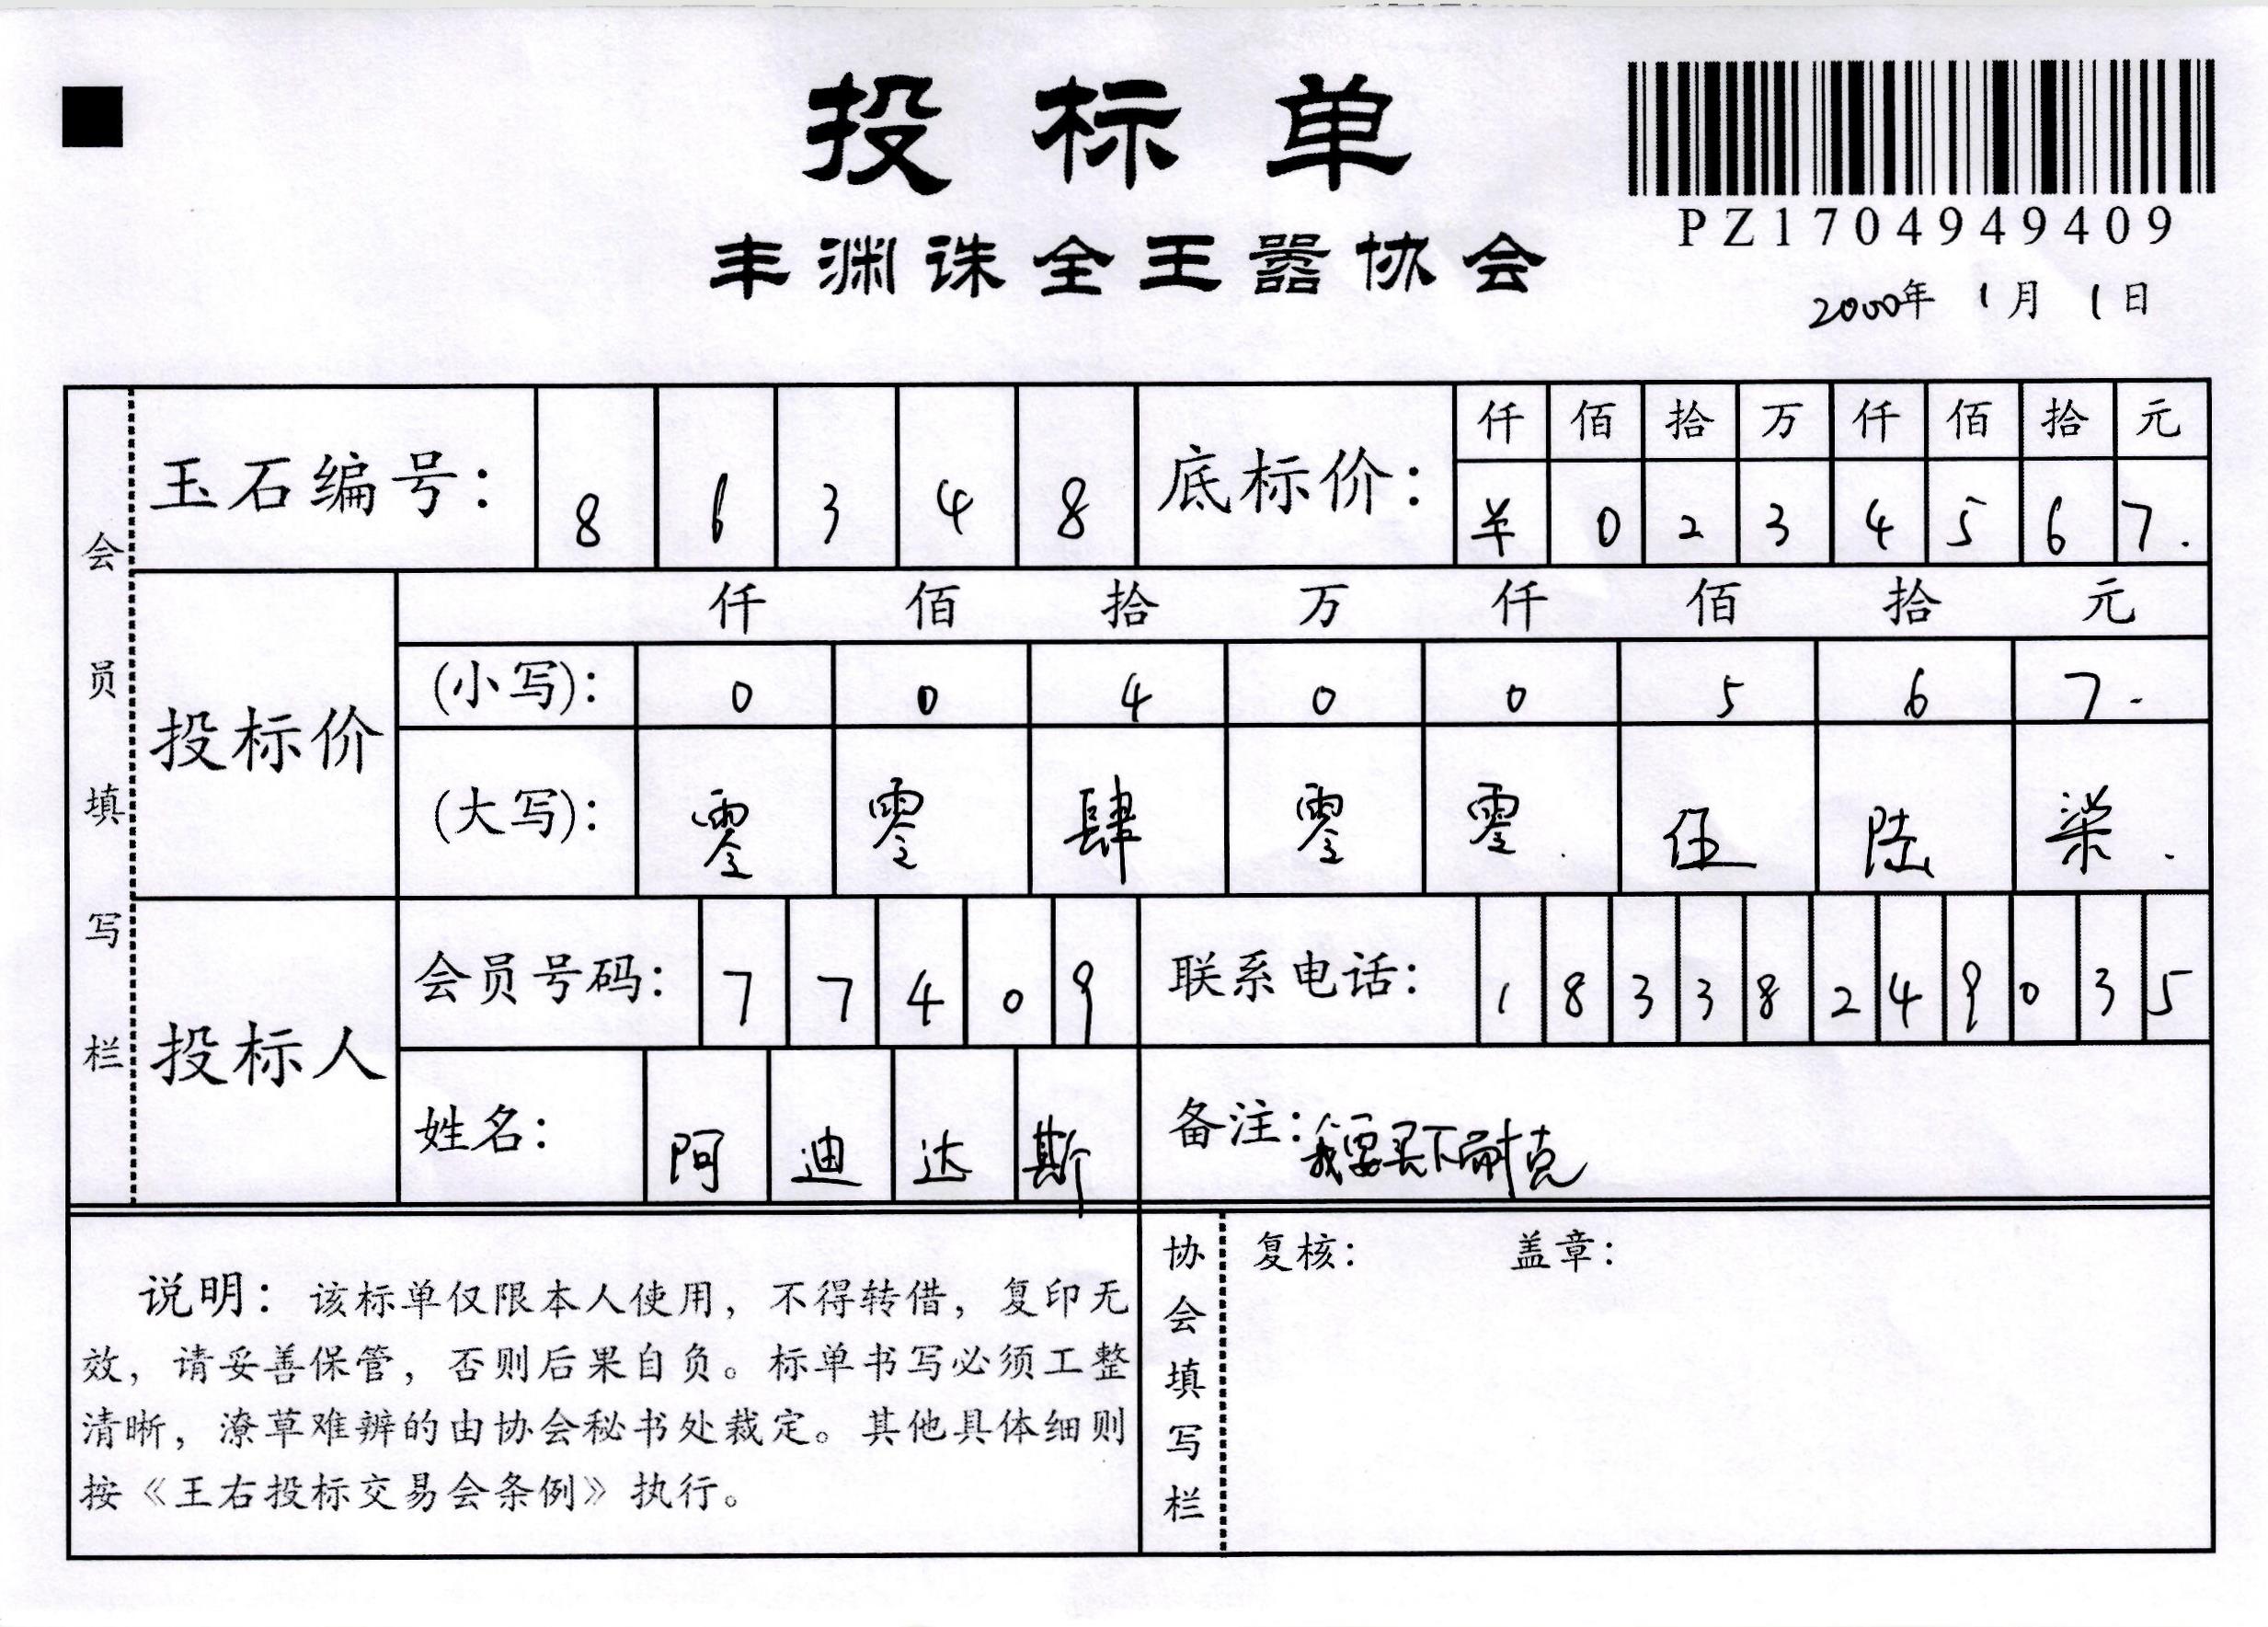 投标单
丰渊诛全王噐协会
PZ1704949409
2000年 1月 1日
会员填写栏
玉石编号: 8 6 3 4 8
底标价:
仟 佰 拾 万 仟 佰 拾 元
羊 0 2 3 4 5 6 7.
投标价
仟 佰 拾 万 仟 佰 拾 元
(小写): 0 0 4 0 0 5 6 7.
(大写): 零 零 肆 零 零. 伍 陆 柒.
投标人
会员号码: 7 7 4 0 9
联系电话: 1 8 3 3 8 2 4 9 0 3 5
姓名: 阿 迪 达 斯
备注: 我要买下耐克
说明: 该标单仅限本人使用，不得转借，复印无
效，请妥善保管，否则后果自负。标单书写必须工整
清晰，潦草难辨的由协会秘书处裁定。其他具体细则
按《王右投标交易会条例》执行。
协会填写栏
复核: 盖章: